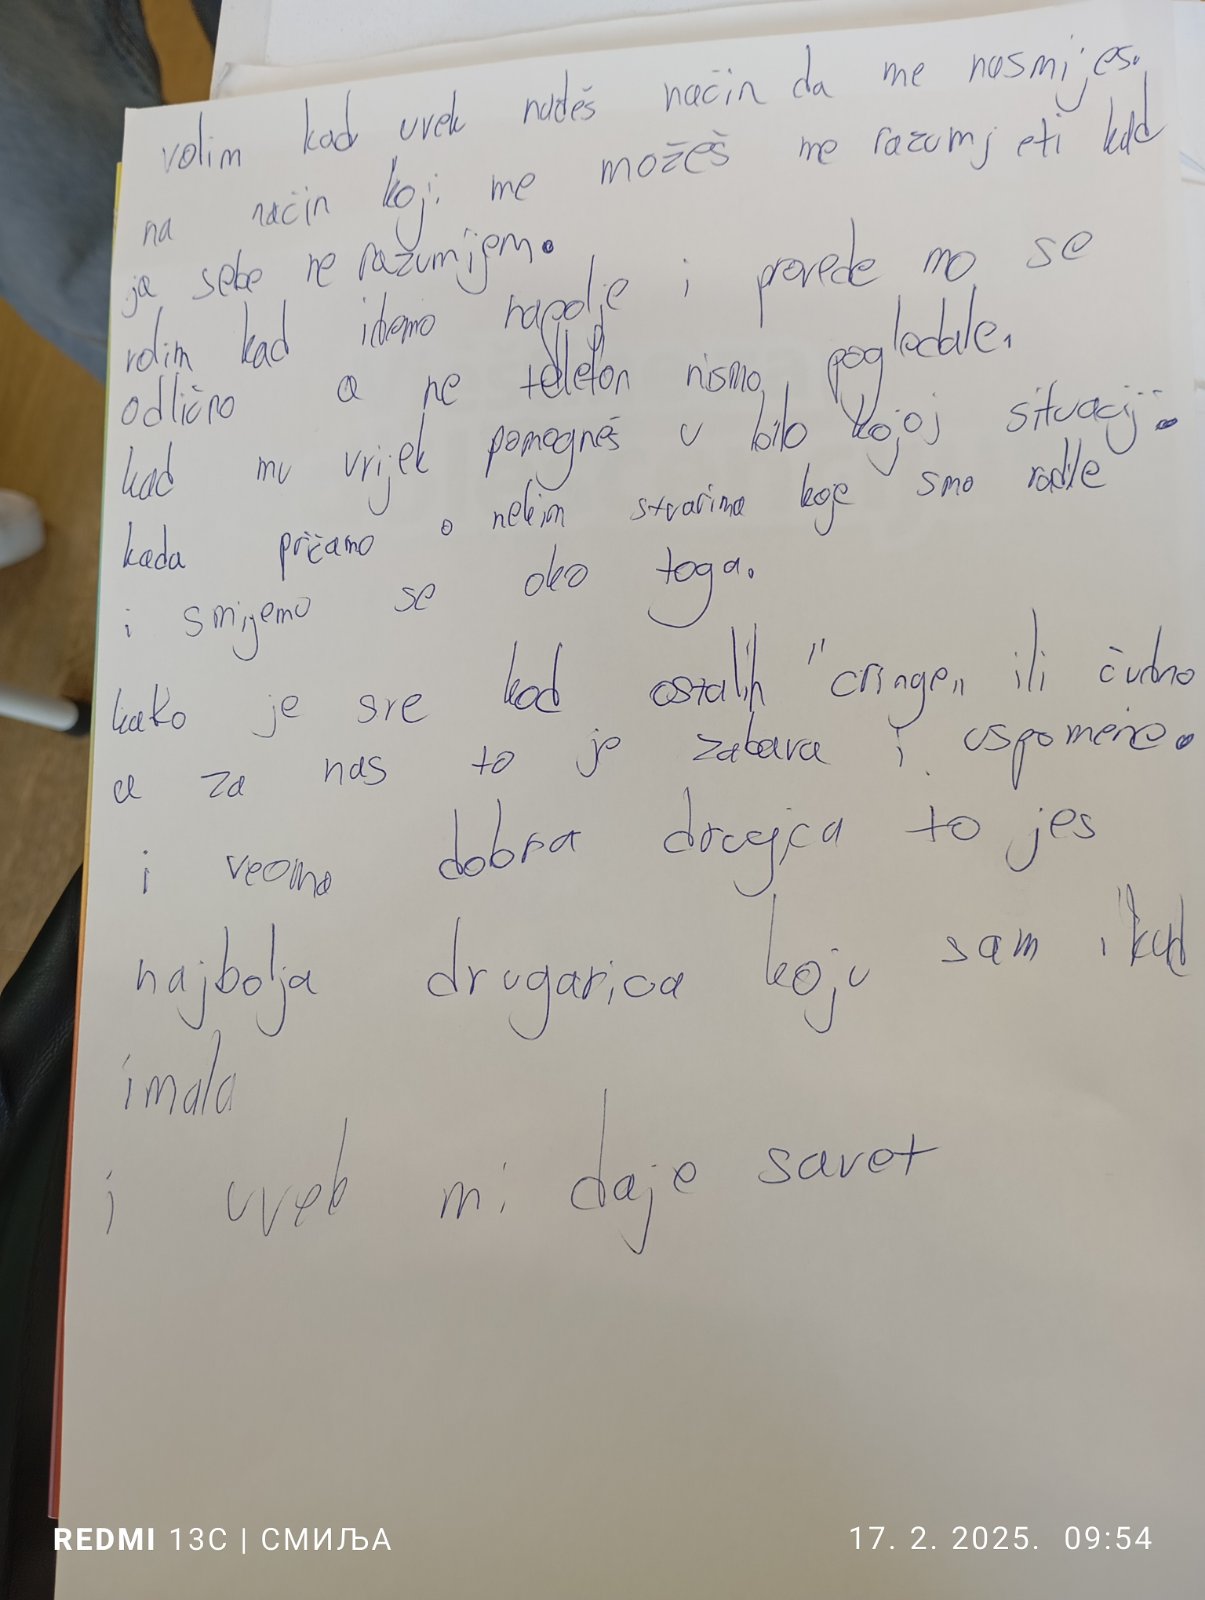 volim kad uvek nađeš način da me nasmiješ.
na način koji me možeš me razumjeti kad
ja sebe ne razumijem.
volim kad idemo napolje i provede mo se
odlično a ne telefon nismo pogledale.
kad mu vrijek pomogneš u bilo kojoj situaciji.
kada pričamo o nekim stvarima koje smo radile
i smijemo se oko toga.
kako je sve kod ostalih "cringe" ili čudno
a za nas to je zabava i uspomene.
i veoma dobra to jes
najbolja drugarica koju sam ikad
imala
i uvek mi daje savet
REDMI 13C | СМИЉА
17. 2. 2025. 09:54